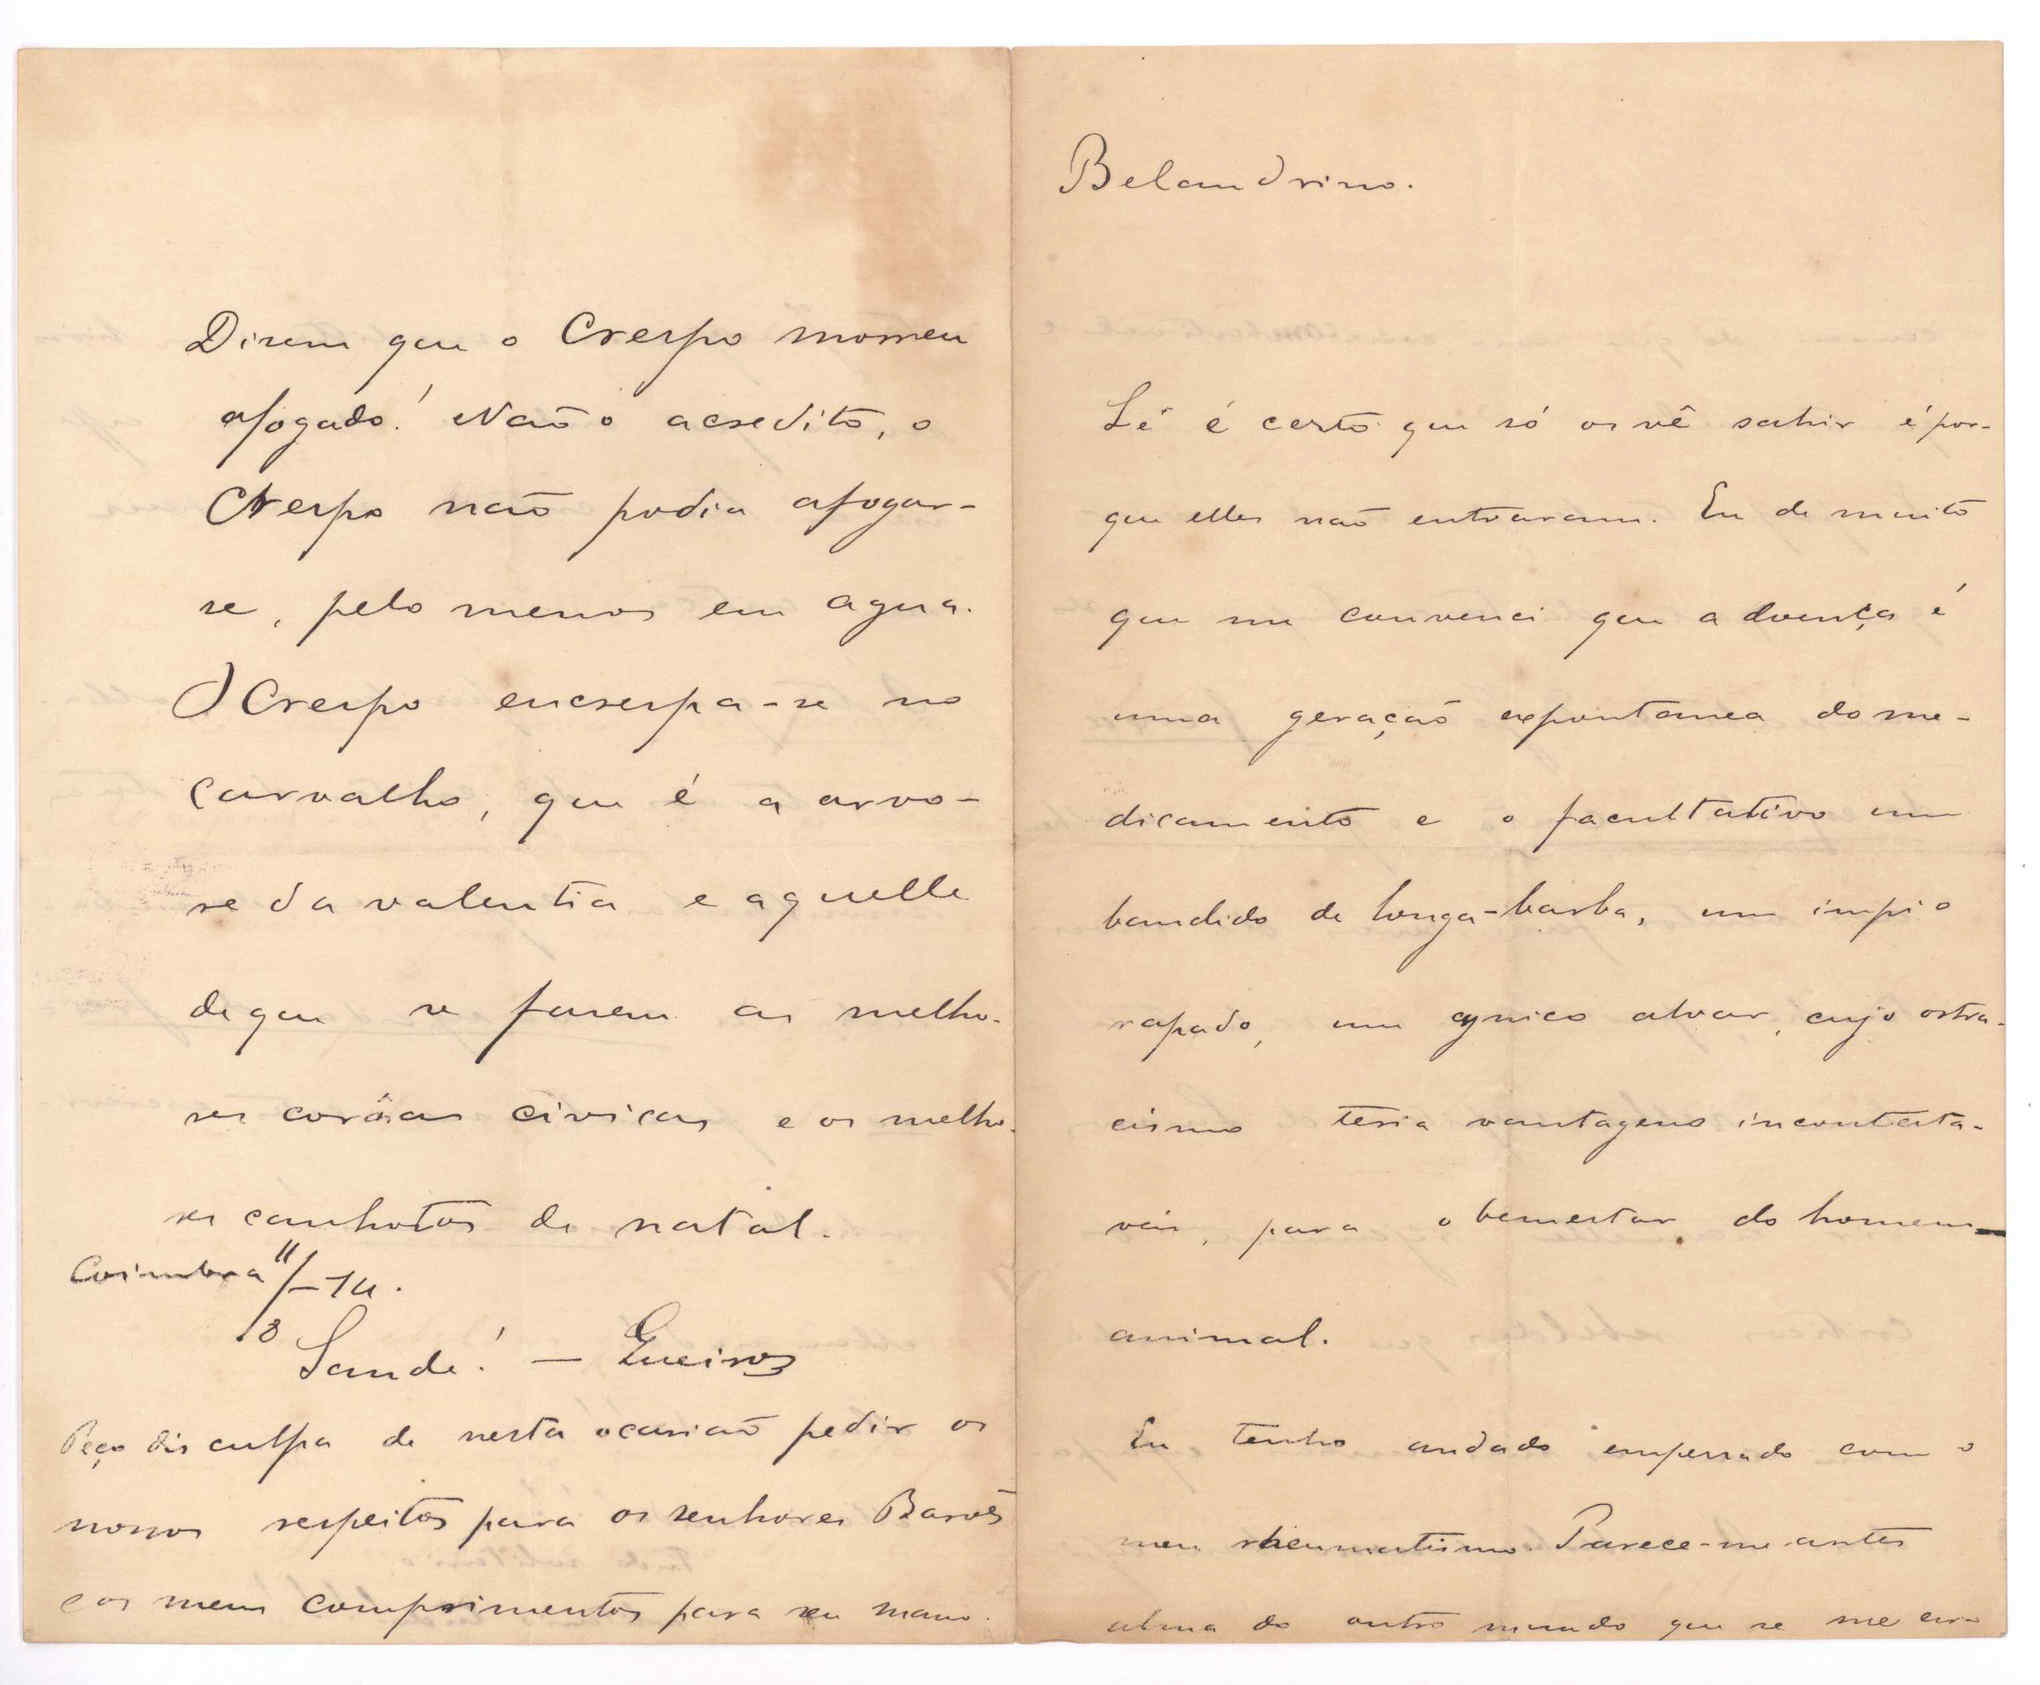 Belandrino.
Sé é certo que só os vê sahir é por-
que elles não entraram. Eu de muito
que me convenci que a doença é
uma geração expontanea do me-
dicamento e o facultativo um
bandido de longa-barba, um impio
rapado, um cynico alvar, cujo ostra-
cismo teria vantagens incontesta-
veis, para o bemestar do homem-
animal.
Eu tenho andado emperrado com o
meu rheumatismo. Parece-me antes
alma do outro mundo que se me
Dizem que o Crespo morreu
afogado! Não o acredito, o
Crespo não podia afogar-
se, pelo menos em agua.
O Crespo encrespa-se no
carvalho, que é a arvo-
re da valentia e aquelle
de que se fazem as melho-
res corôas civicas e os melho-
res canhotos de natal.
Coimbra 11/18 - 74.
Saude! — Queiroz
Peço disculpa de nesta ocasião pedir os
nossos respeitos para os senhores Barões
e os meus comprimentos para seu mano.